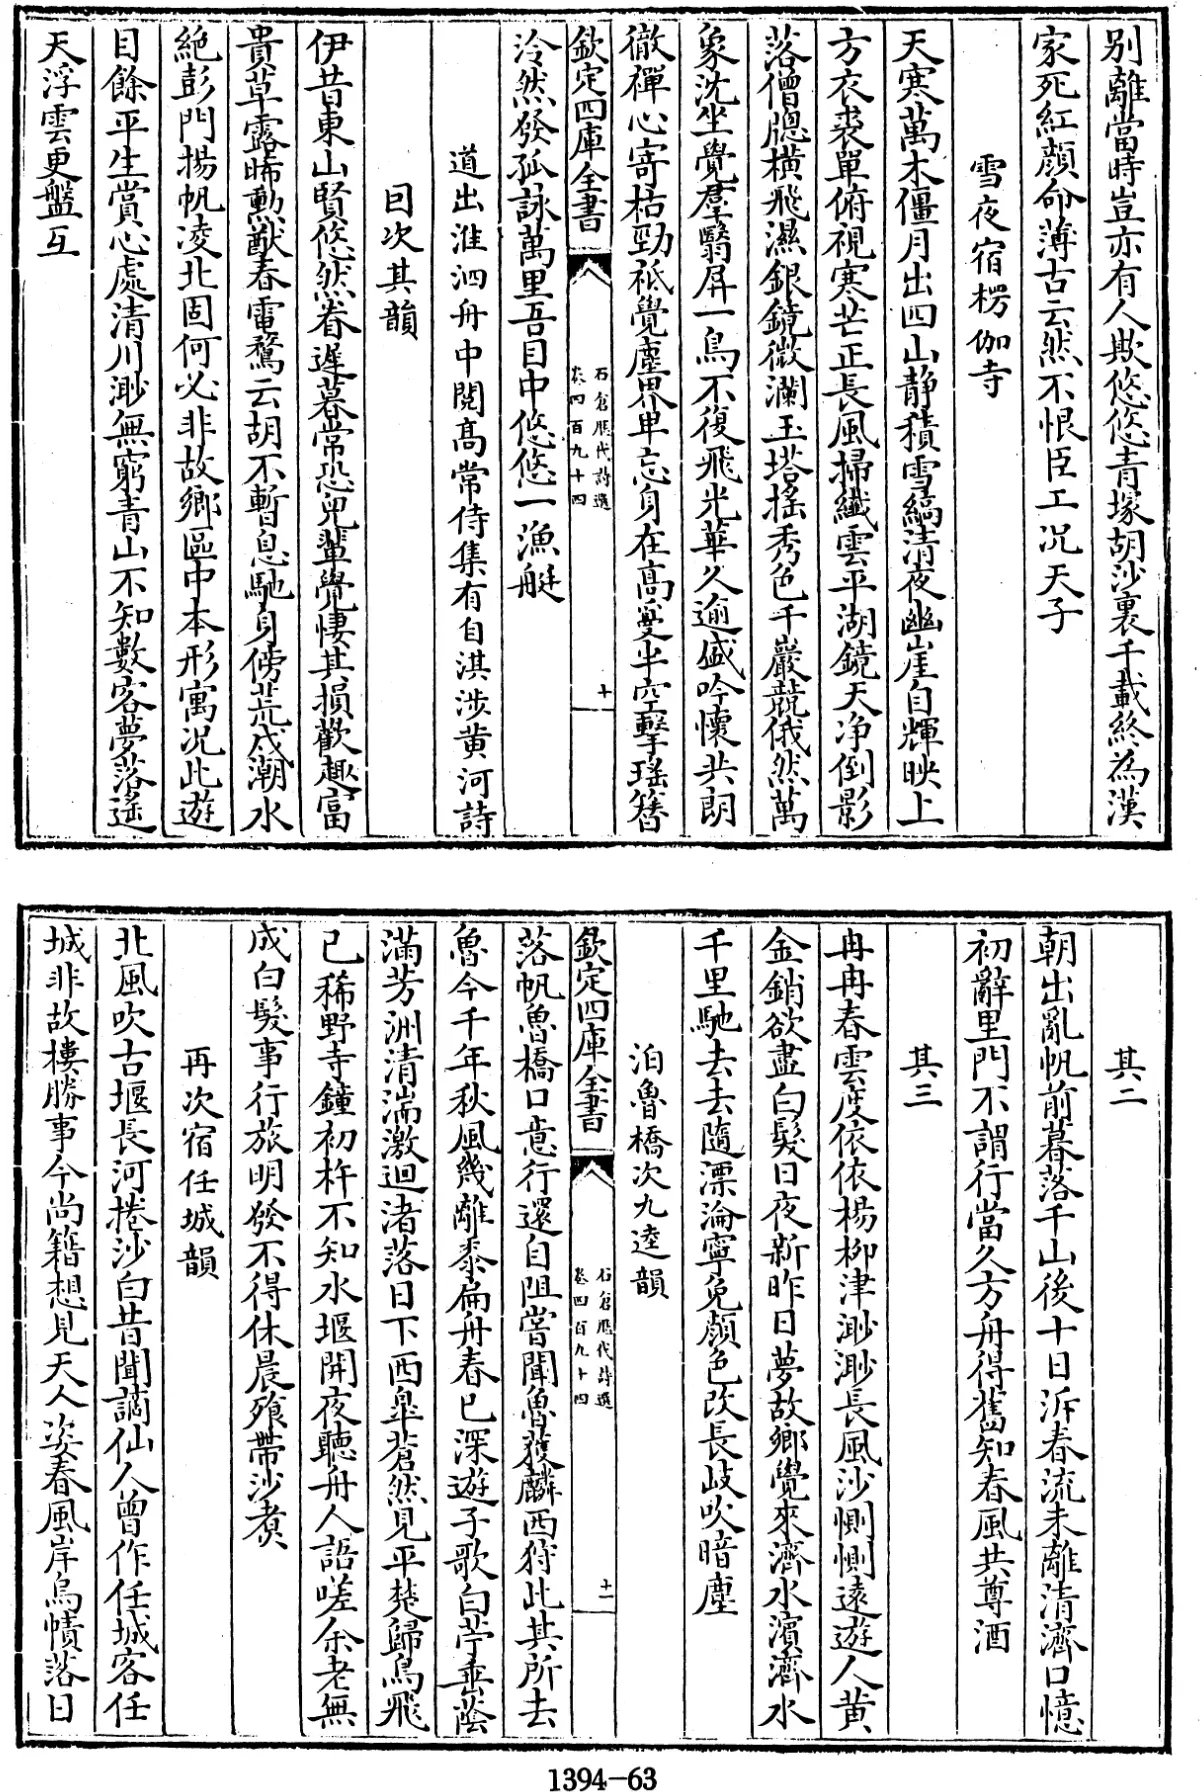 别離當時豈亦有人欺悠悠青塚胡沙裏千載終為漢
家死紅顔命薄古云然不恨臣工况天子
雪夜宿楞伽寺
天寒萬木僵月出四山静積雪縞清夜幽崖自輝映上
方衣裘單俯視寒芒正長風掃纖雲平湖鏡天净倒影
落僧牕横飛濕銀鏡微瀾玉塔揺秀色千巖競俄然萬
象沈坐覺羣翳屏一鳥不復飛光華久逾盛吟懷共朗
徹禪心寄枯勁祇覺塵界卑忘身在高夐半空擊瑶簪
欽定四庫全書
石倉歴代詩選
卷四百九十四
十
泠然發孤詠萬里吾目中悠悠一漁艇
道出淮泗舟中閲髙常侍集有自淇涉黄河詩
因次其韻
伊昔東山賢悠然眷遲暮常恐兒輩覺悽其損歡趣富
貴草露晞勲猷春電騖云胡不暫息馳身傍荒戍潮水
絶彭門揚帆凌北固何必非故鄉區中本形寓况此遊
目餘平生賞心處清川渺無窮青山不知數客夢落遥
天浮雲更盤互
其二
朝出亂帆前暮落千山後十日泝春流未離清濟口憶
初辭里門不謂行當久方舟得舊知春風共尊酒
其三
冉冉春雲度依依楊栁津渺渺長風沙惻惻遠遊人黄
金銷欲盡白髮日夜新昨日夢故鄉覺來濟水濱濟水
千里馳去去隨漂淪寧免顔色改長岐吹暗塵
泊魯橋次九逵韻
欽定四庫全書
石倉歴代詩選
卷四百九十四
十一
落帆魯橋口意行還自阻嘗聞魯獲麟西狩此其所去
魯今千年秋風幾離黍扁舟春已深遊子歌白苧垂蔭
滿芳洲清湍激迴渚落日下西臯蒼然見平楚歸鳥飛
已稀野寺鐘初杵不知水堰開夜聽舟人語嗟余老無
成白髮事行旅明發不得休晨飱帶沙煮
再次宿任城韻
北風吹古堰長河捲沙白昔聞謫仙人曾作任城客任
城非故樓勝事今尚籍想見天人姿春風岸烏幘落日
1394-63